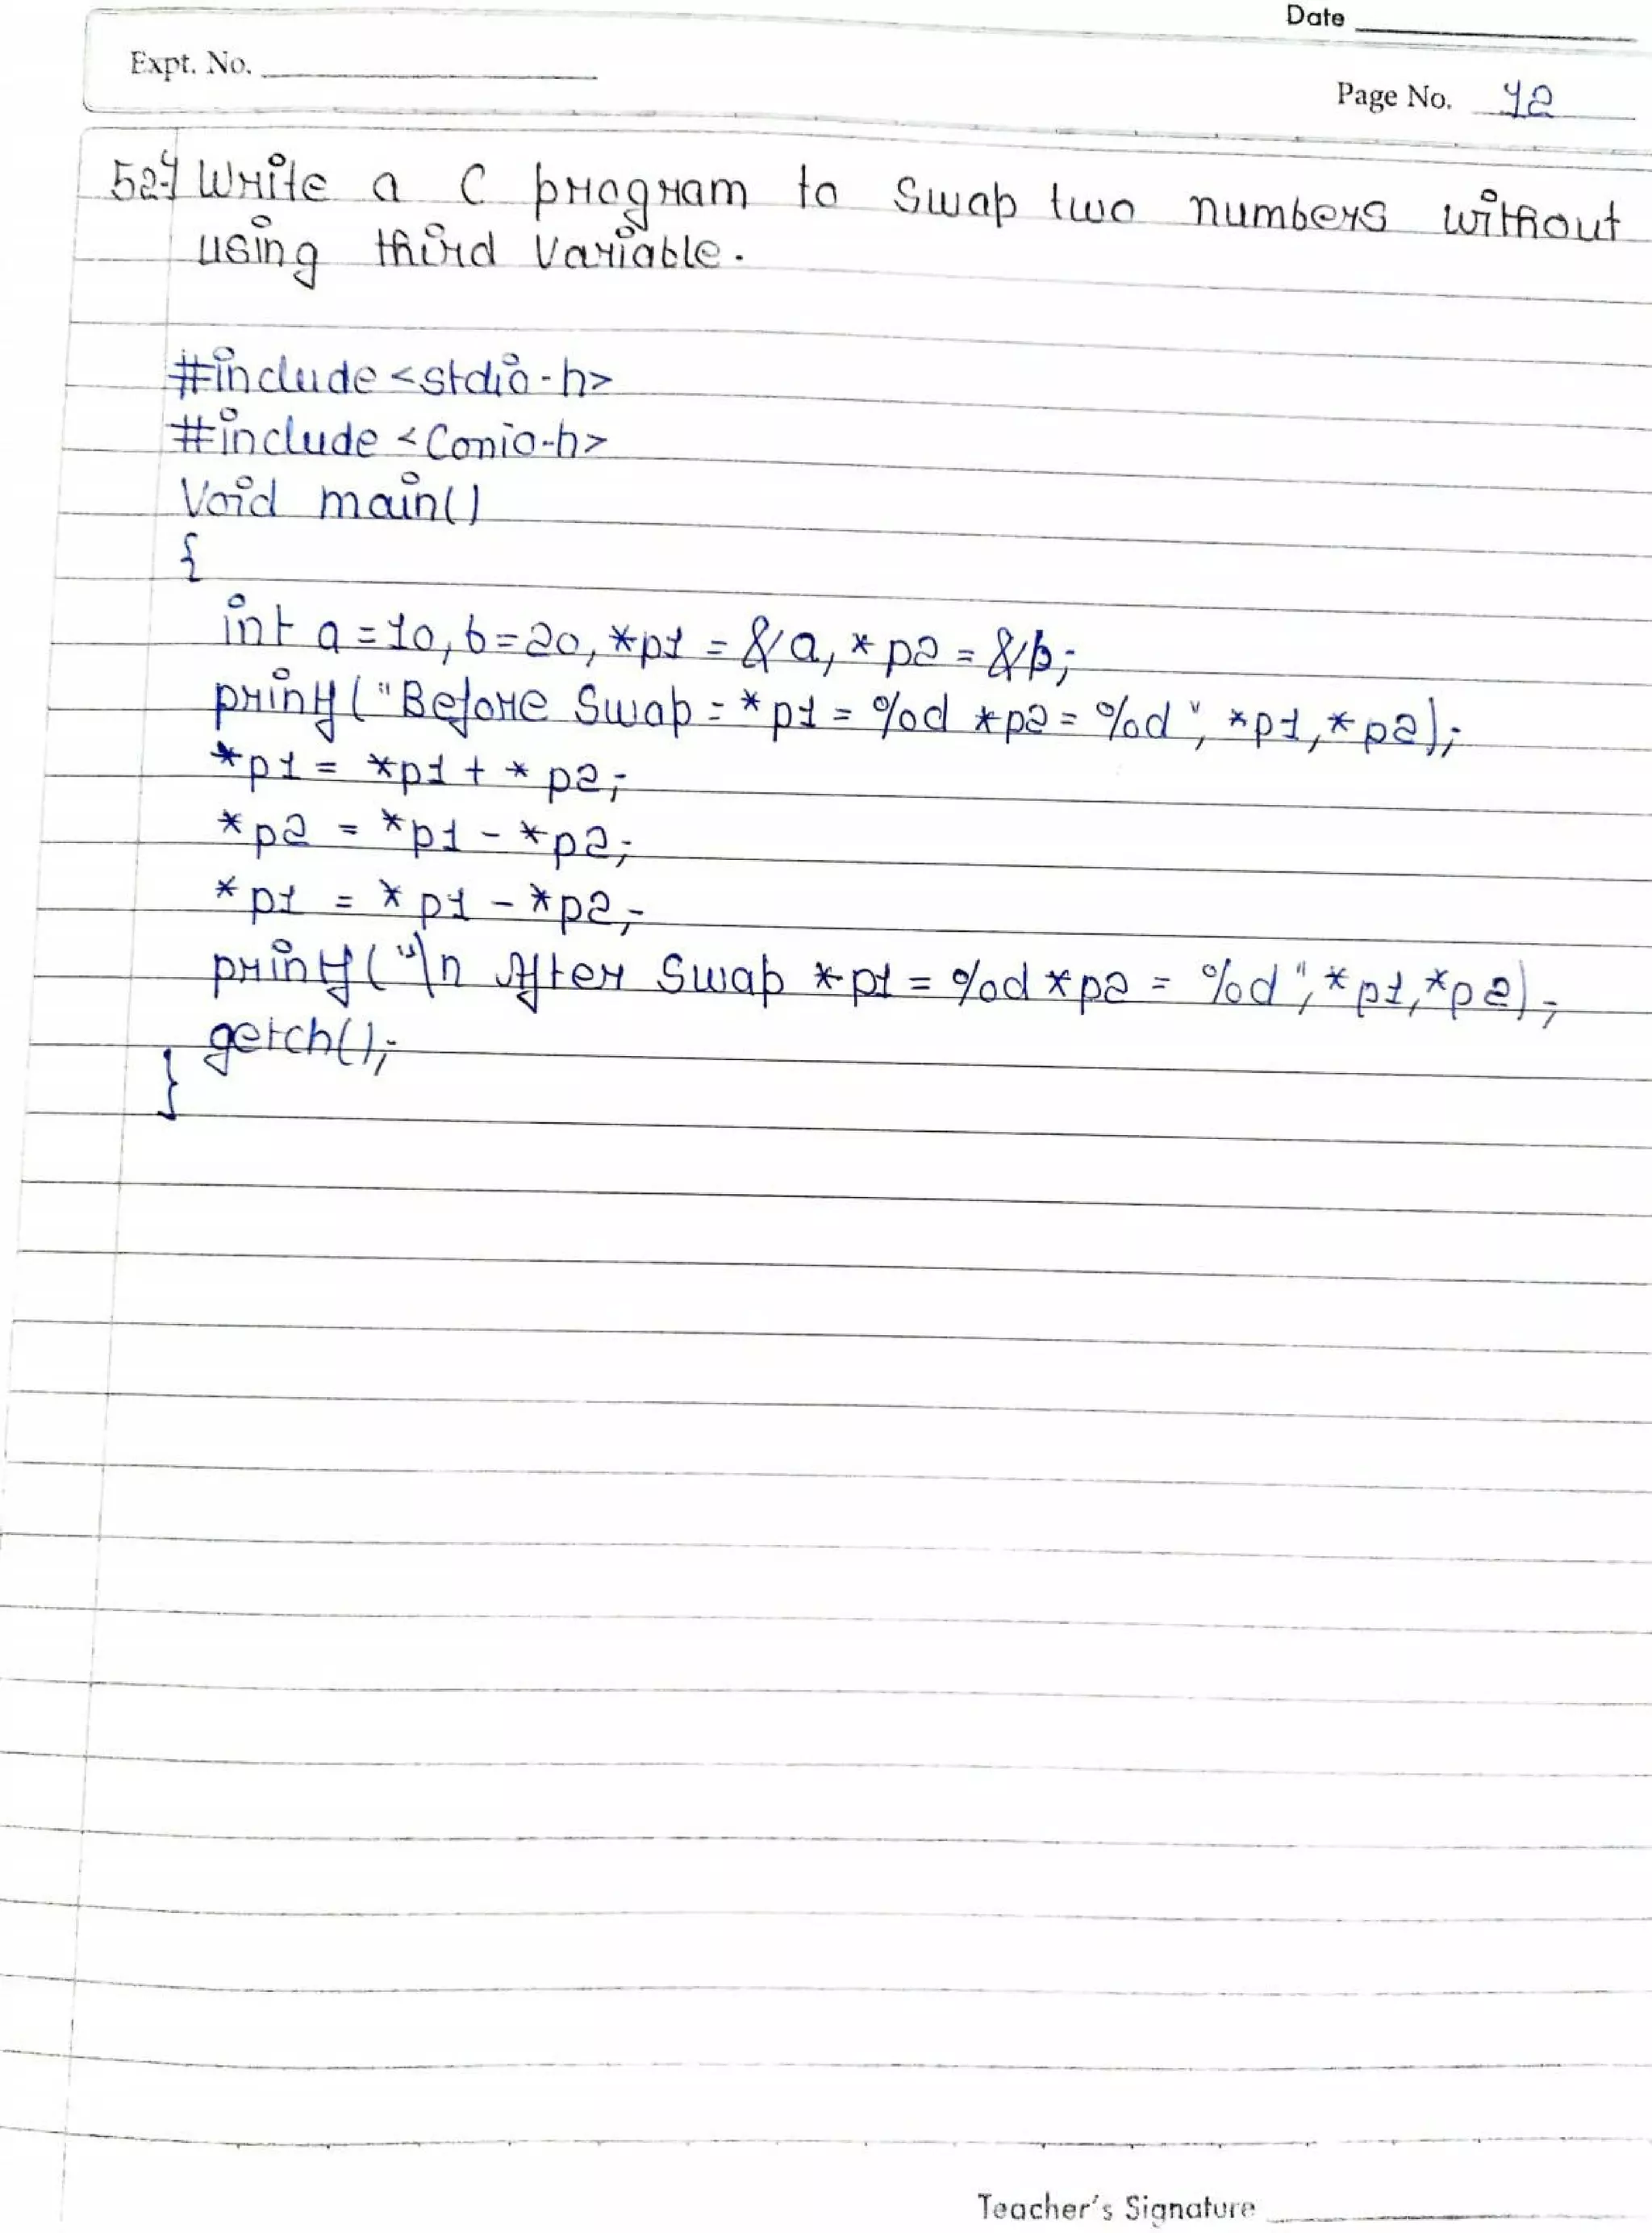 Date
Expt. No.
Page No. 42
52-) Write a C program to Swap two numbers without
using third Variable.
#include <stdio.h>
#include <Conio.h>
Void main()
{
int a=10, b=20, *p1 = &a, *p2 = &b;
printf("Before Swap = *p1 = %d *p2 = %d", *p1, *p2);
*p1 = *p1 + *p2;
*p2 = *p1 - *p2;
*p1 = *p1 - *p2;
printf("\n After Swap *p1 = %d *p2 = %d", *p1, *p2);
getch();
}
Teacher's Signature